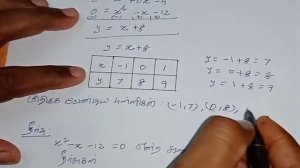 0 = x² - x - 12
y = x + 8
y = x + 8
x -1 0 1
y 7 8 9
y = -1 + 8 = 7
y = 0 + 8 = 8
y = 1 + 8 = 9
புள்ளிகள் (-1, 7), (0, 8),
x² - x - 12 = 0 என்ற